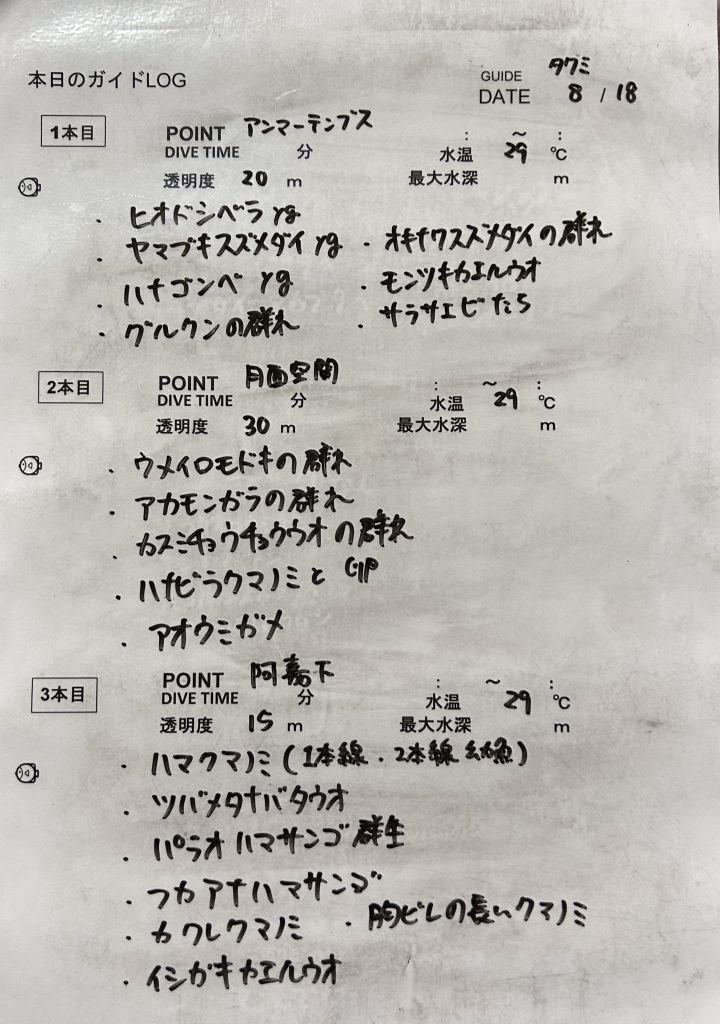 本日のガイドLOG
GUIDE タクミ
DATE 8 / 18
1本目
POINT アンマーテンブス
DIVE TIME 分 : ～ :
水温 29 ℃
透明度 20 m 最大水深 m
・ヒオドシベラ yg
・ヤマブキスズメダイ yg ・オキナワスズメダイの群れ
・ハナゴンベ yg ・モンツキカエルウオ
・グルクンの群れ ・サラサエビたち
2本目
POINT 月面空間
DIVE TIME 分 : ～ :
水温 29 ℃
透明度 30 m 最大水深 m
・ウメイロモドキの群れ
・アカモンガラの群れ
・カスミチョウチョウウオの群れ
・ハナビラクマノミと
・アオウミガメ
3本目
POINT 阿嘉下
DIVE TIME 分 : ～ :
水温 29 ℃
透明度 15 m 最大水深 m
・ハマクマノミ(1本線・2本線 幼魚)
・ツバメタナバタウオ
・パラオハマサンゴ群生
・フカアナハマサンゴ
・カクレクマノミ ・胸ビレの長いクマノミ
・イシガキカエルウオ